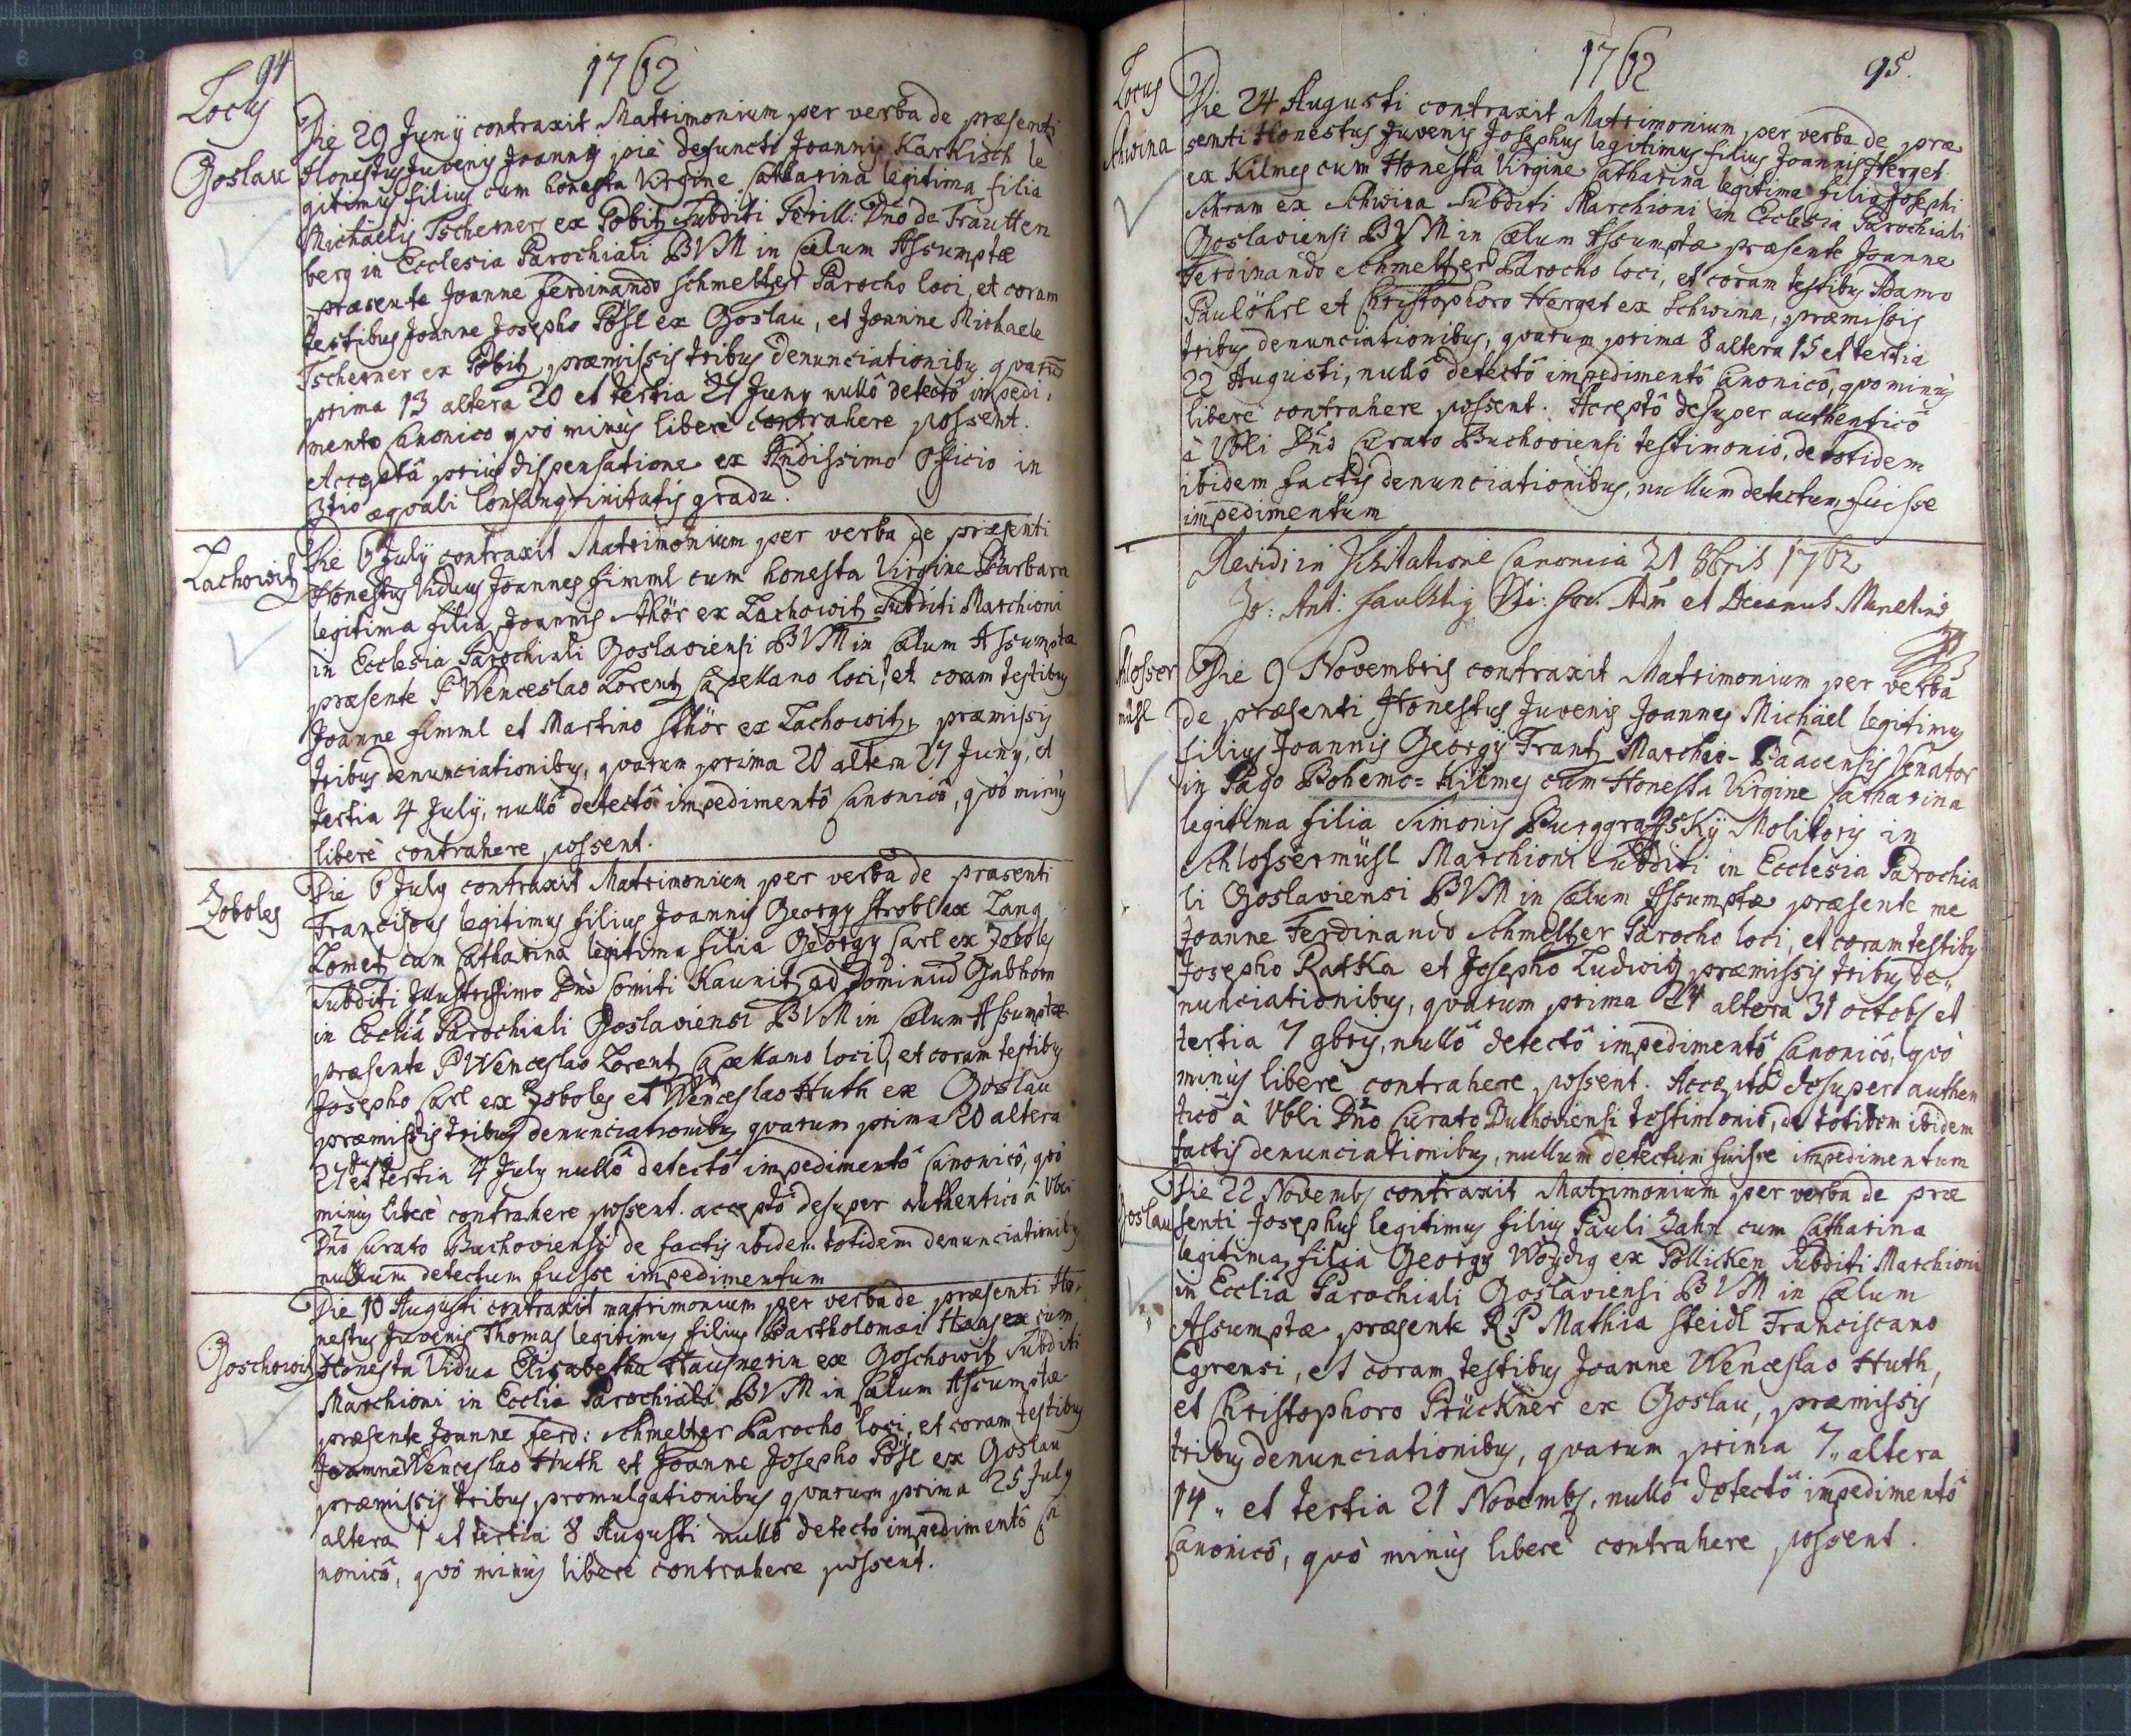 94
1762
Locus
Goslau
Die 29 Junÿ contraxit Matrimonium per verba de præsenti
Honestus Juvenis Joannes piè defuncti Joannis Karkisch le
gitimus filius cum honesta Virgine Catharina legitima filia
Michaelis Tscherner ex Pobitz Subditi Perill: Dno de Trautten
berg in Ecclesia Parochiali BVM in Cælum Assumptæ
præsente Joanne Ferdinando Schmeltzer Parocho loci, et coram
testibus Joanne Josepho Pösl ex Goslau, et Joanne Michaele
Tscherner ex Pobitz præmissis tribus denunciationibus quarum
prima 13 altera 20 et tertia 27 Juny nullô detectô impedi,
mento Canonico quo minùs liberè contrahere possent.
Acceptâ priùs dispensatione ex Rndissimo Officio in
3tio æquali Consanquinitatis gradu.
Lachowitz
Die 6 Julÿ contraxit Matrimonium per verba de præsenti
Honestus Viduus Joannes Fimml cum honesta Virgine Barbara
legitima filia Joannis Sthör ex Lachowitz Subditi Marchioni
in Ecclesia Parochiali Goslaviensi BVM in Cælum Assumptæ
præsente P Wenceslao Lorentz Capellano loci, et coram testibus
Joanne Fimml et Martino Sthör ex Lachowitz, præmissis
tribus denunciationibus, quarum prima 20 altera 27 Juny, et
tertia 4 July, nullô detectô impedimentô Canonicô, quò minùs
liberè contrahere possent.
Zoboles
Die 6 July contraxit Matrimonium per verba de præsenti
Franciscus legitimus filius Joannis Georgy Strobl ex Lang
Lometz cum Catharina legitima filia Georgy Carl ex Zoboles
Subditi Illustrissimo Dno Comiti Kaunitz ad Dominium Gabhorn
in Ecclia Parochiali Goslaviensi BVM in Cælum Assumptæ
præsente P Wenceslao Lorentz Capellano loci, et coram testibus
Josepho Carl ex Zoboles et Wenceslao Huth ex Goslau
præmissis tribus denunciationibus quarum prima 20 altera
Juny
27 et tertia 4 July nullô detectô impedimentô Canonicô, quò
minùs liberè contrahere possent. acceptô desuper authenticô à Vbli
Dno Curato Buchoviensi de factis ibidem totidem denunciationibus
nullum detectum fuisse impedimentum
Goschowitz
Die 10 Augusti contraxit matrimonium per verba de præsenti Ho,
nestus Juvenis Thomas legitimus filius Bartholomæi Haas ex cum
Honesta Vidua Elisabetha Hausnerin ex Goschowitz Subditi
Marchioni in Ecclia Parochiali BVM in Cælum Assumptæ
præsente Joanne Ferd: Schmeltzer Parocho loci, et coram testibus
Joanne Wenceslao Huth et Joanne Josepho Pösl ex Goslau
præmissis tribus promulgationibus quarum prima 25 July
altera 1 et tertia 8 Augusti nullô detecto impedimentô Ca
nonicô, quò minùs liberè contrahere possent.
1762
95.
Locus
Schwina
Die 24 Augusti contraxit Matrimonium per verba de præ
senti Honestus Juvenis Josephus legitimus filius Joannis Herget
ex Kilmes cum Honesta Virgine Catharina legitima filia Josephi
Schram ex Schwina Subditi Marchioni in Ecclesia Parochiali
Goslaviensi BVM in Cælum Assumptæ præsente Joanne
Ferdinando Schmeltzer Parocho loci, et coram testibus Adamo
Paulöhrl et Christophoro Herget ex Schwina, præmissis
tribus denunciationibus, quarum prima 8 altera 15 et tertia
22 Augusti, nullô detectô impedimentô Canonicô, quo minùs
liberè contrahere possent. Acceptô desuper authenticô
à Vbli Dno Curato Buchoviensi testimonio, de totidem
ibidem factis denunciationibus, nullum detectum fuisse
impedimentum
Revidi in Visitatione Canonica 21 8bris 1762
Jo: Ant: Faulstig Vic: For: Adm et Decanus
Schlosser
mühl
Die 9 Novembris contraxit Matrimonium per verba
de præsenti Honestus Juvenis Joannes Michäel legitimus
filius Joannis Georgÿ Frantz Marchio-Baadensis Venator
in Pago Bohemo=Kilmes cum Honesta Virgine Catharina
legitima filia Simonis Burggrafskÿ Molitoris in
Schlossermühl Marchioni Subditi in Ecclesia Parochia
li Goslaviensi BVM in Cælum Assumptæ præsente me
Joanne Ferdinando Schmeltzer Parocho loci, et coram testibus
Josepho Ratka et Josepho Ludwig præmissis tribus de„
nunciationibus, quarum prima 24 altera 31 octobs et
tertia 7 9bris, nullô detectô impedimentô Canonicô, quò
minùs liberè contrahere possent. Acceptô desuper authen
ticô à Vbli Dno Curato Buchoviensi testimoniô, de totidem ibidem
factis denunciationibus, nullum detectum fuisse impedimentum
Goslau
Die 22 Novembs contraxit Matrimonium per verba de præ
senti Josephus legitimus filius Pauli Zahn cum Catharina
legitima filia Georgy Woÿdig ex Pollicken Subditi Marchioni
in Ecclia Parochiali Goslaviensi BVM in Cælum
Assumptæ præsente RP Mathia Steidl Franciscano
Egrensi, et coram testibus Joanne Wenceslao Huth,
et Christophoro Prückner ex Goslau, præmissis
tribus denunciationibus, quarum prima 7„ altera
14„ et tertia 21 Novembs, nullô detectô impedimentô
Canonicô, quò minùs liberè contrahere possent.